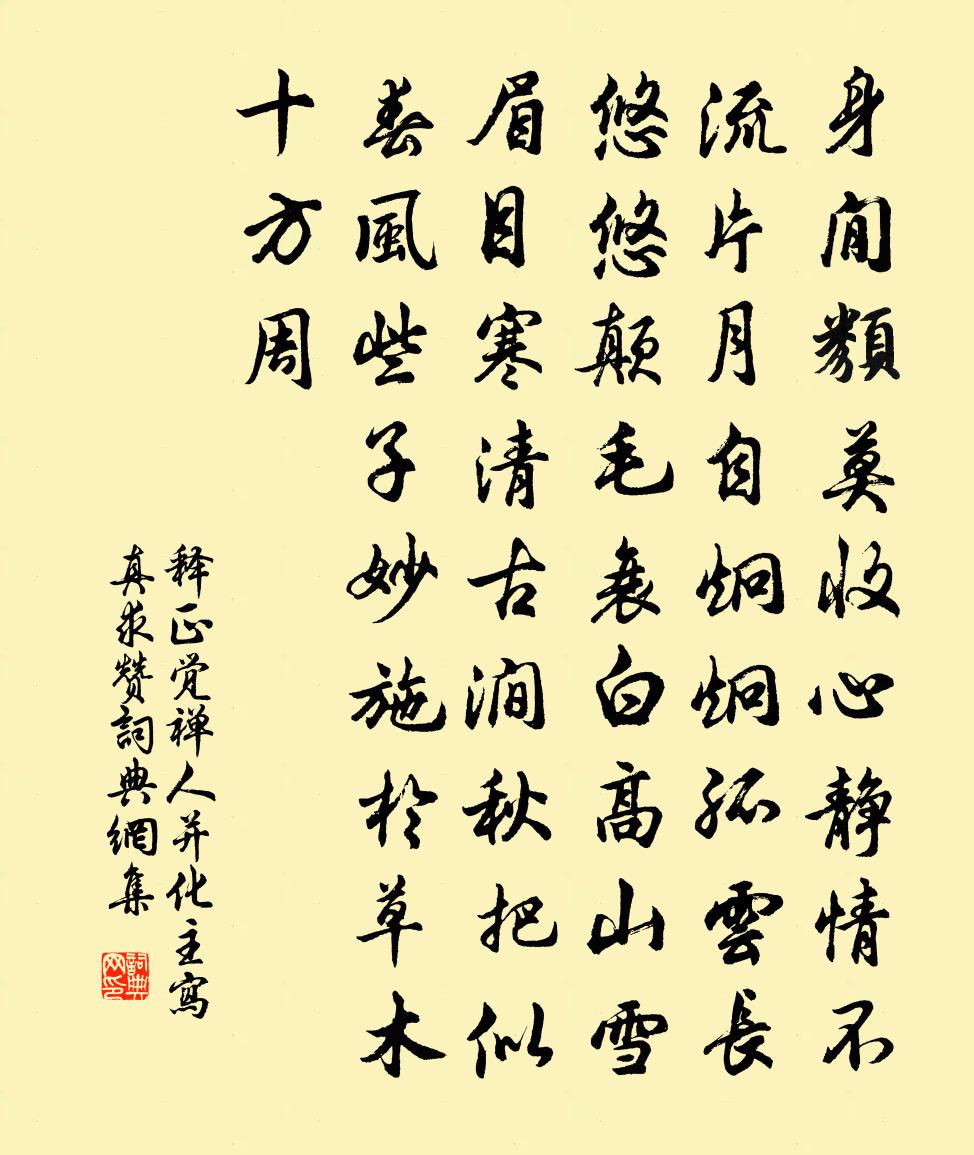 身閒類莫收心靜情不
流片月自炯炯孤雲長
悠悠顛毛衰白高山雪
眉目寒清古澗秋把似
春風些子妙施於草木
十方周
释正觉禅人并化主寫
真求赞詞典網集
詞典网印